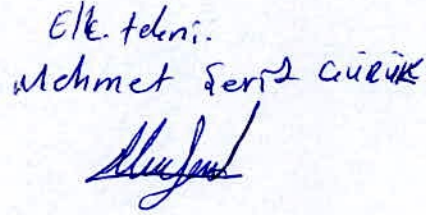 Elk. tekni.
Mehmet Şerif GÜRÜK